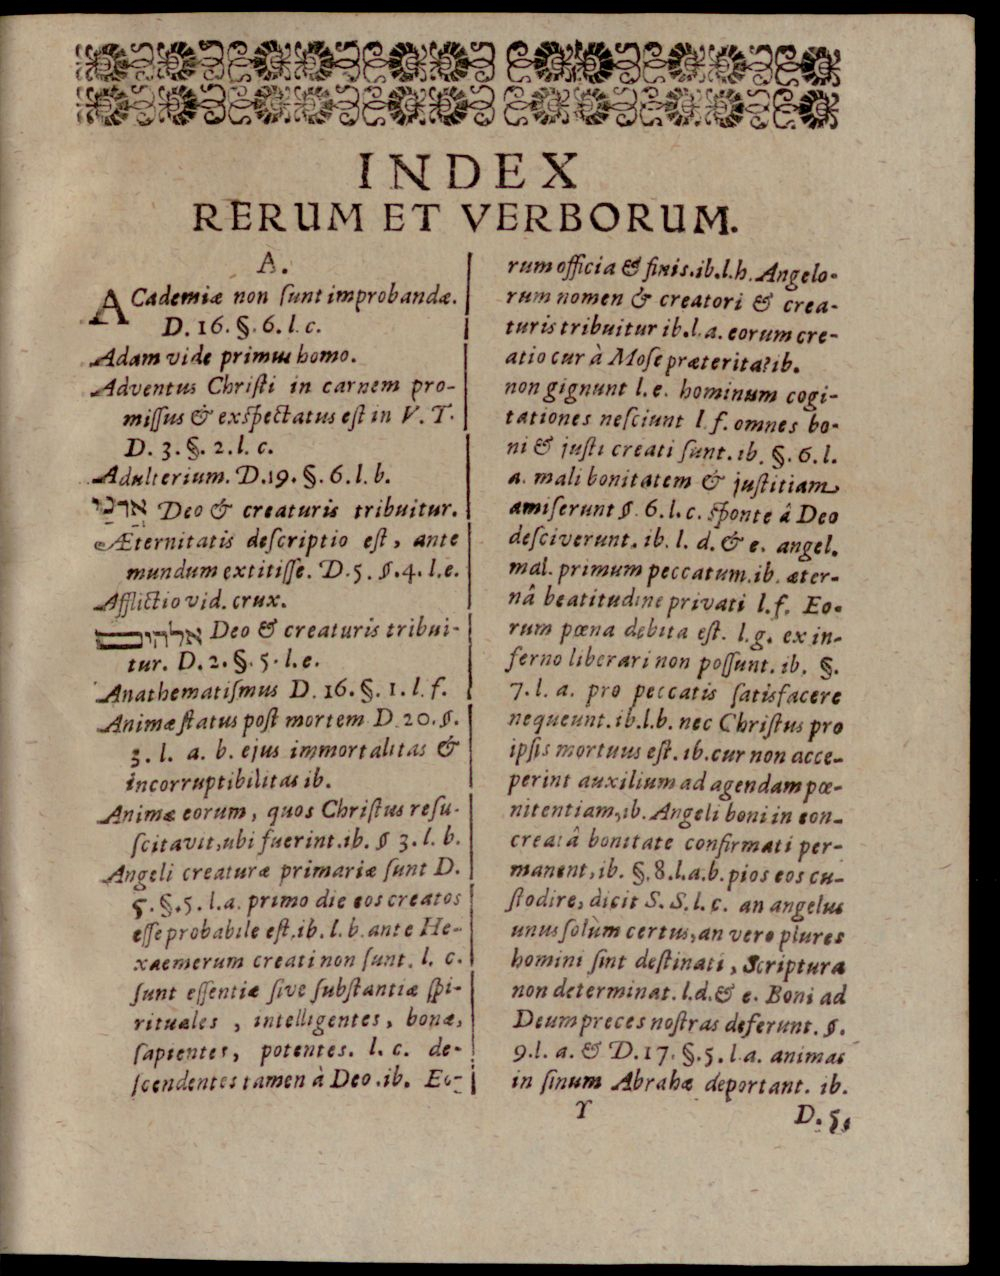 INDEX
RERUM ET VERBORUM.
A.
ACademiæ non ſunt improbandæ.
D. 16. §. 6. l. c.
Adam vide primus homo.
Adventus Chriſti in carnem pro-
miſſus & exſpectatus eſt in V. T.
D. 3. §. 2. l. c.
Adulterium. D. 19. §. 6. l. b.
אדני Deo & creaturis tribuitur.
Æternitatis deſcriptio eſt, ante
mundum extitiſſe. D. 5. §. 4. l. e.
Afflictio vid. crux.
אלהים Deo & creaturis tribui-
tur. D. 2. §. 5. l. e.
Anathematiſmus D. 16. §. 1. l. f.
Animæ ſtatus poſt mortem D. 20. §.
3. l. a. b. ejus immortalitas &
incorruptibilitas ib.
Animæ eorum, quos Chriſtus reſu-
ſcitavit, ubi fuerint. ib. § 3. l. b.
Angeli creaturæ primariæ ſunt D.
5. §. 5. l. a. primo die eos creatos
eſſe probabile eſt. ib. l. b. ante He-
xaemerum creati non ſunt. l. c.
ſunt eſſentiæ ſive ſubſtantiæ ſpi-
rituales, intelligentes, bonæ,
ſapientes, potentes. l. c. de-
ſcendentes tamen à Deo. ib. Eo-
rum officia & finis. ib. l. h. Angelo-
rum nomen & creatori & crea-
turis tribuitur ib. l. a. eorum cre-
atio cur à Moſe præterita? ib.
non gignunt l. e. hominum cogi-
tationes neſciunt l. f. omnes bo-
ni & juſti creati ſunt. ib. §. 6. l.
a. mali bonitatem & juſtitiam
amiſerunt §. 6. l. c. ſponte â Deo
deſciverunt. ib. l. d. & e. angel.
mal. primum peccatum. ib. æter-
nâ beatitudine privati l. f. Eo-
rum pœna debita eſt. l. g. ex in-
ferno liberari non poſſunt. ib. §.
7. l. a. pro peccatis ſatisfacere
nequeunt. ib. l. b. nec Chriſtus pro
ipſis mortuus eſt. ib. cur non acce-
perint auxilium ad agendam pœ-
nitentiam, ib. Angeli boni in con-
creatâ bonitate confirmati per-
manent, ib. §. 8. l. a. b. pios eos cu-
ſtodire, dicit S. S. l. c. an angelus
unus ſolùm certus, an vero plures
homini ſint deſtinati, Scriptura
non determinat. l. d. & e. Boni ad
Deum preces noſtras deferunt. §.
9. l. a. & D. 17. §. 5. l. a. animas
in ſinum Abrahæ deportant. ib.
Y
D. 5.